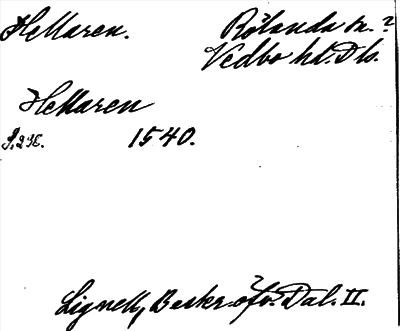 Hellaren. Rölanda sn.?
Vedbo hd. Dls.
Hellaren
S. 296. 1540.
Lignell, Beskr. öfv. Dal. II.